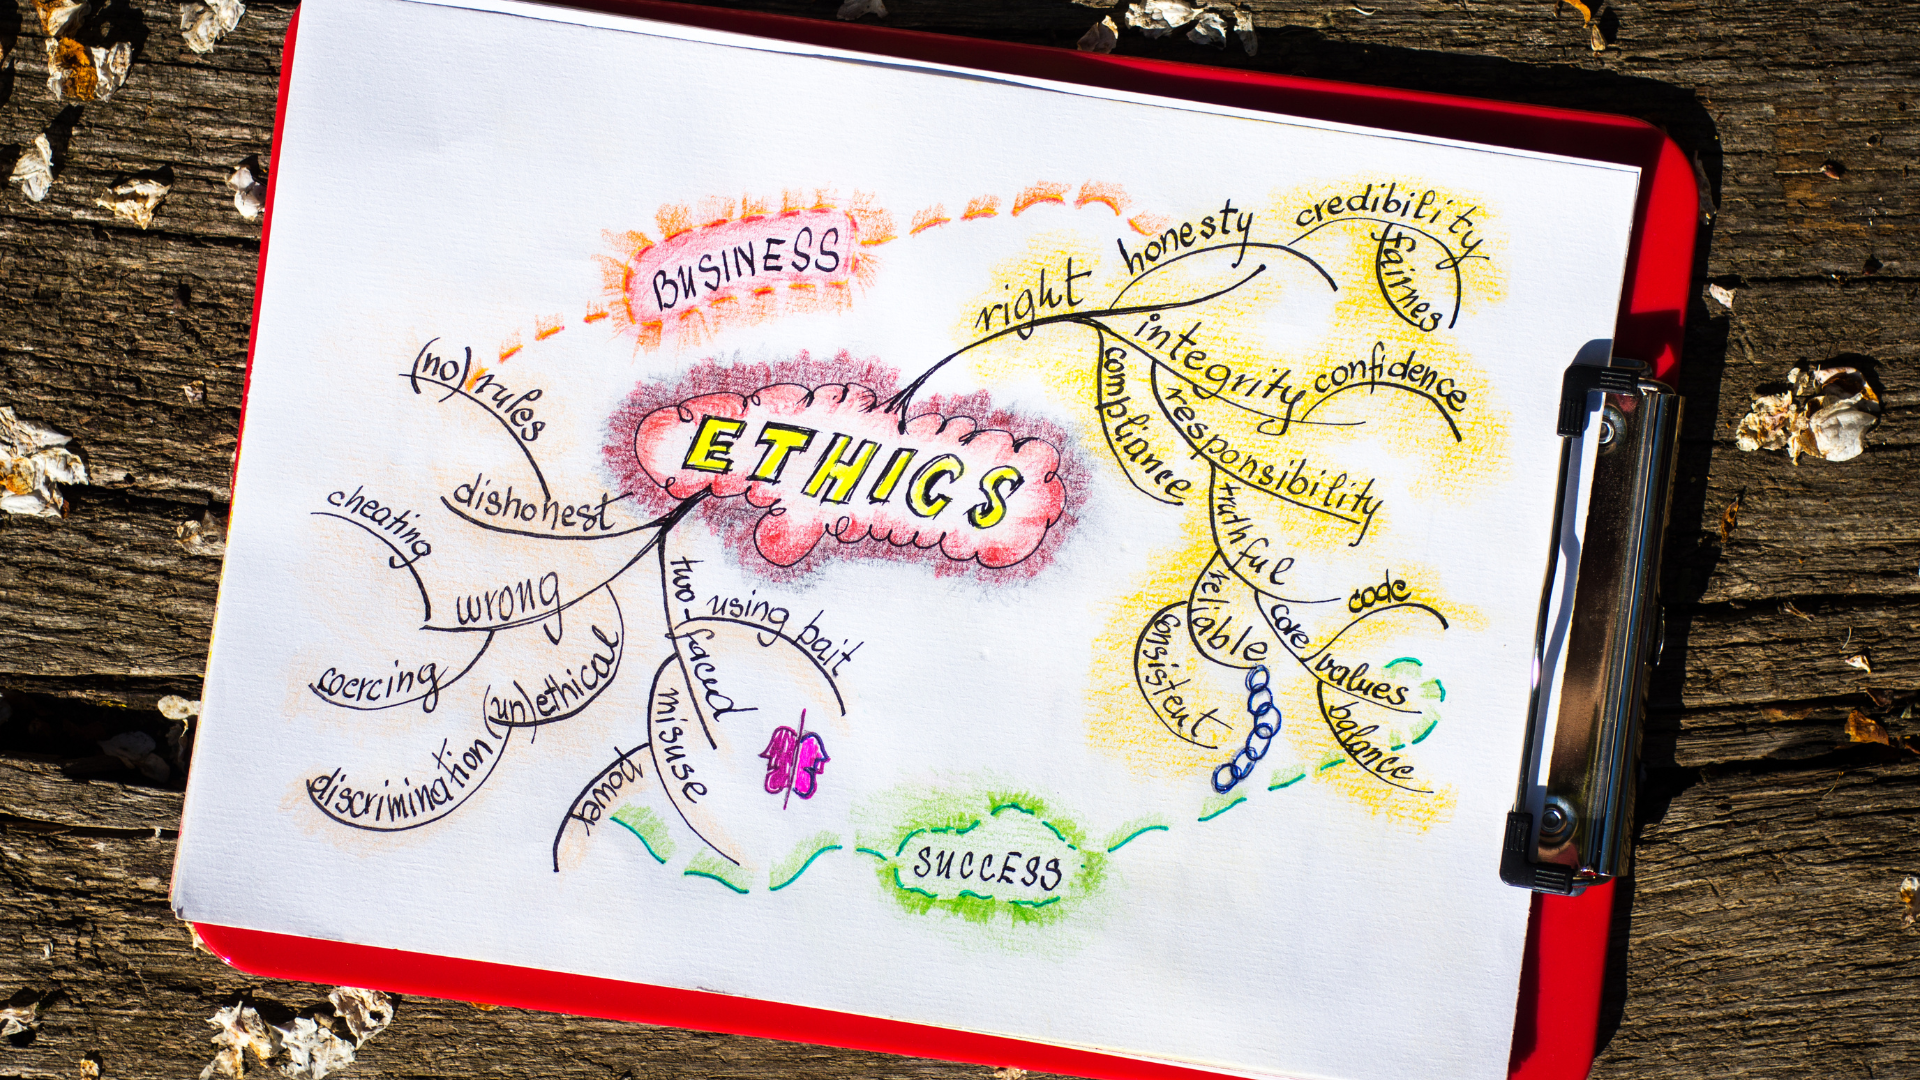 BUSINESS
ETHICS
right
honesty
credibility
fairnes
integrity
confidence
compliance
responsibility
truthful
reliable
consistent
core
values
code
balance
(no) rules
dishonest
cheating
wrong
coercing
(un)ethical
discrimination
two-faced
using bait
misuse
power
SUCCESS